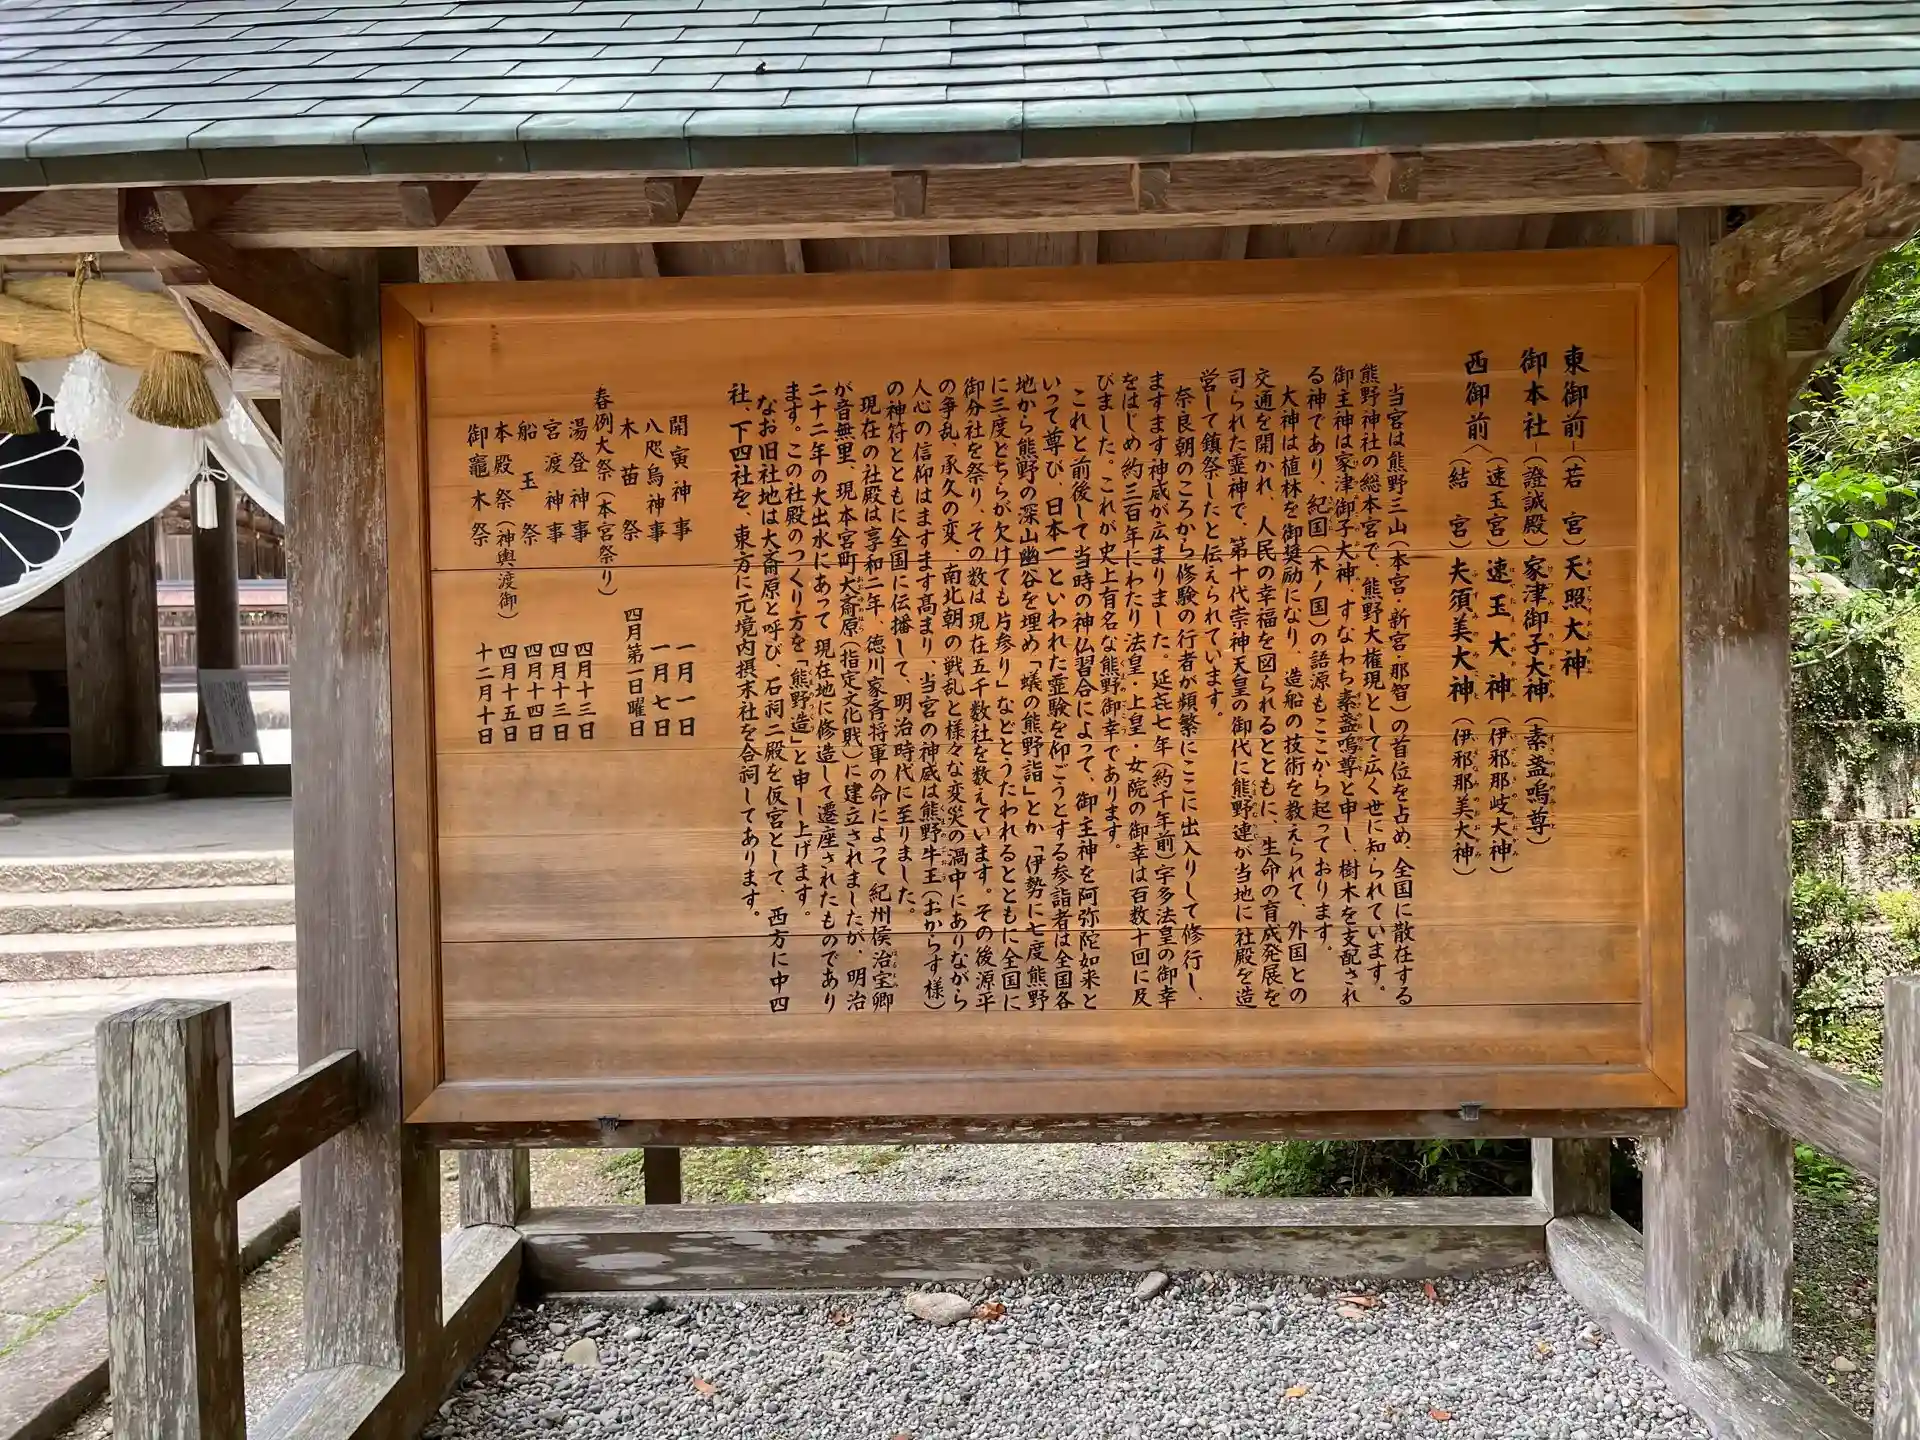 東御前―(若宮)天照大神
御本社―(證誠殿)家津御子大神(素盞嗚尊)
西御前 (速玉宮)速玉大神(伊邪那岐大神)
(結宮)夫須美大神(伊邪那美大神)
当宮は熊野三山(本宮・新宮・那智)の首位を占め、全国に散在する
熊野神社の総本宮で、熊野大権現として広く世に知られています。
御主神は家津御子大神、すなわち素盞嗚尊と申し、樹木を支配され
る神であり、紀国(木ノ国)の語源もここから起っております。
大神は植林を御奨励になり、造船の技術を教えられて、外国との
交通を開かれ、人民の幸福を図られるとともに、生命の育成発展を
司られた霊神で、第十代崇神天皇の御代に熊野連が当地に社殿を造
営して鎮祭したと伝えられています。
奈良朝のころから修験の行者が頻繁にここに出入りして修行し、
ますます神威が広まりました。延喜七年(約千年前)宇多法皇の御幸
をはじめ約三百年にわたり法皇・上皇・女院の御幸は百数十回に及
びました。これが史上有名な熊野御幸であります。
これと前後して当時の神仏習合によって、御主神を阿弥陀如来と
いって尊び、日本一といわれた霊験を仰ごうとする参詣者は全国各
地から熊野の深山幽谷を埋め「蟻の熊野詣」とか「伊勢に七度熊野
に三度どちらが欠けても片参り」などとうたわれるとともに全国に
御分社を祭り、その数は現在五千数社を数えています。その後源平
の争乱、承久の変、南北朝の戦乱と様々な変災の渦中にありながら
人心の信仰はますます高まり、当宮の神威は熊野牛王(おからす様)
の神符とともに全国に伝播して、明治時代に至りました。
現在の社殿は享和二年、徳川家斉将軍の命によって紀州侯治宝卿
が音無里、現本宮町大斎原(指定文化財)に建立されましたが、明治
二十二年の大出水にあって現在地に修造して遷座されたものであり
ます。この社殿のつくり方を「熊野造」と申し上げます。
なお旧社地は大斎原と呼び、石祠二殿を仮宮として、西方に中四
社、下四社を、東方に元境内摂末社を合祠してあります。
開寅神事 一月一日
八咫烏神事 一月七日
木苗祭 四月第一日曜日
春例大祭(本宮祭り)
湯登神事 四月十三日
宮渡神事 四月十三日
船玉祭 四月十四日
本殿祭(神輿渡御) 四月十五日
御竈木祭 十二月十日